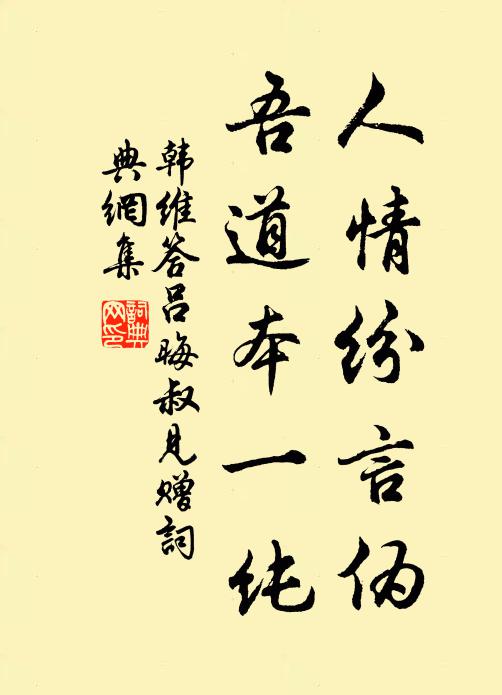 人情纷言伪
吾道本一纯
韩维答吕晦叔见赠词
典網集
詞典網印